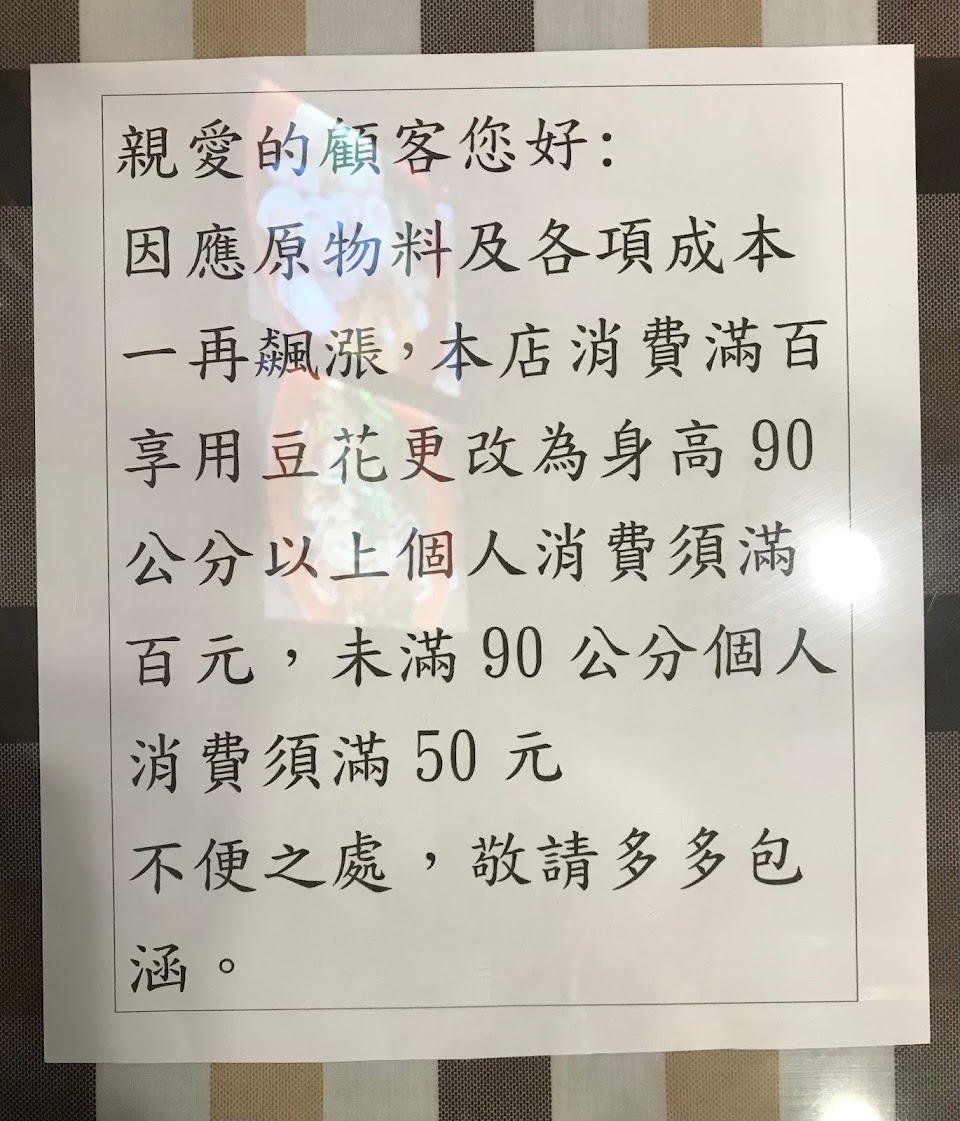 親愛的顧客您好:
因應原物料及各項成本
一再飆漲，本店消費滿百
享用豆花更改為身高 90
公分以上個人消費須滿
百元，未滿 90 公分個人
消費須滿 50 元
不便之處，敬請多多包
涵。